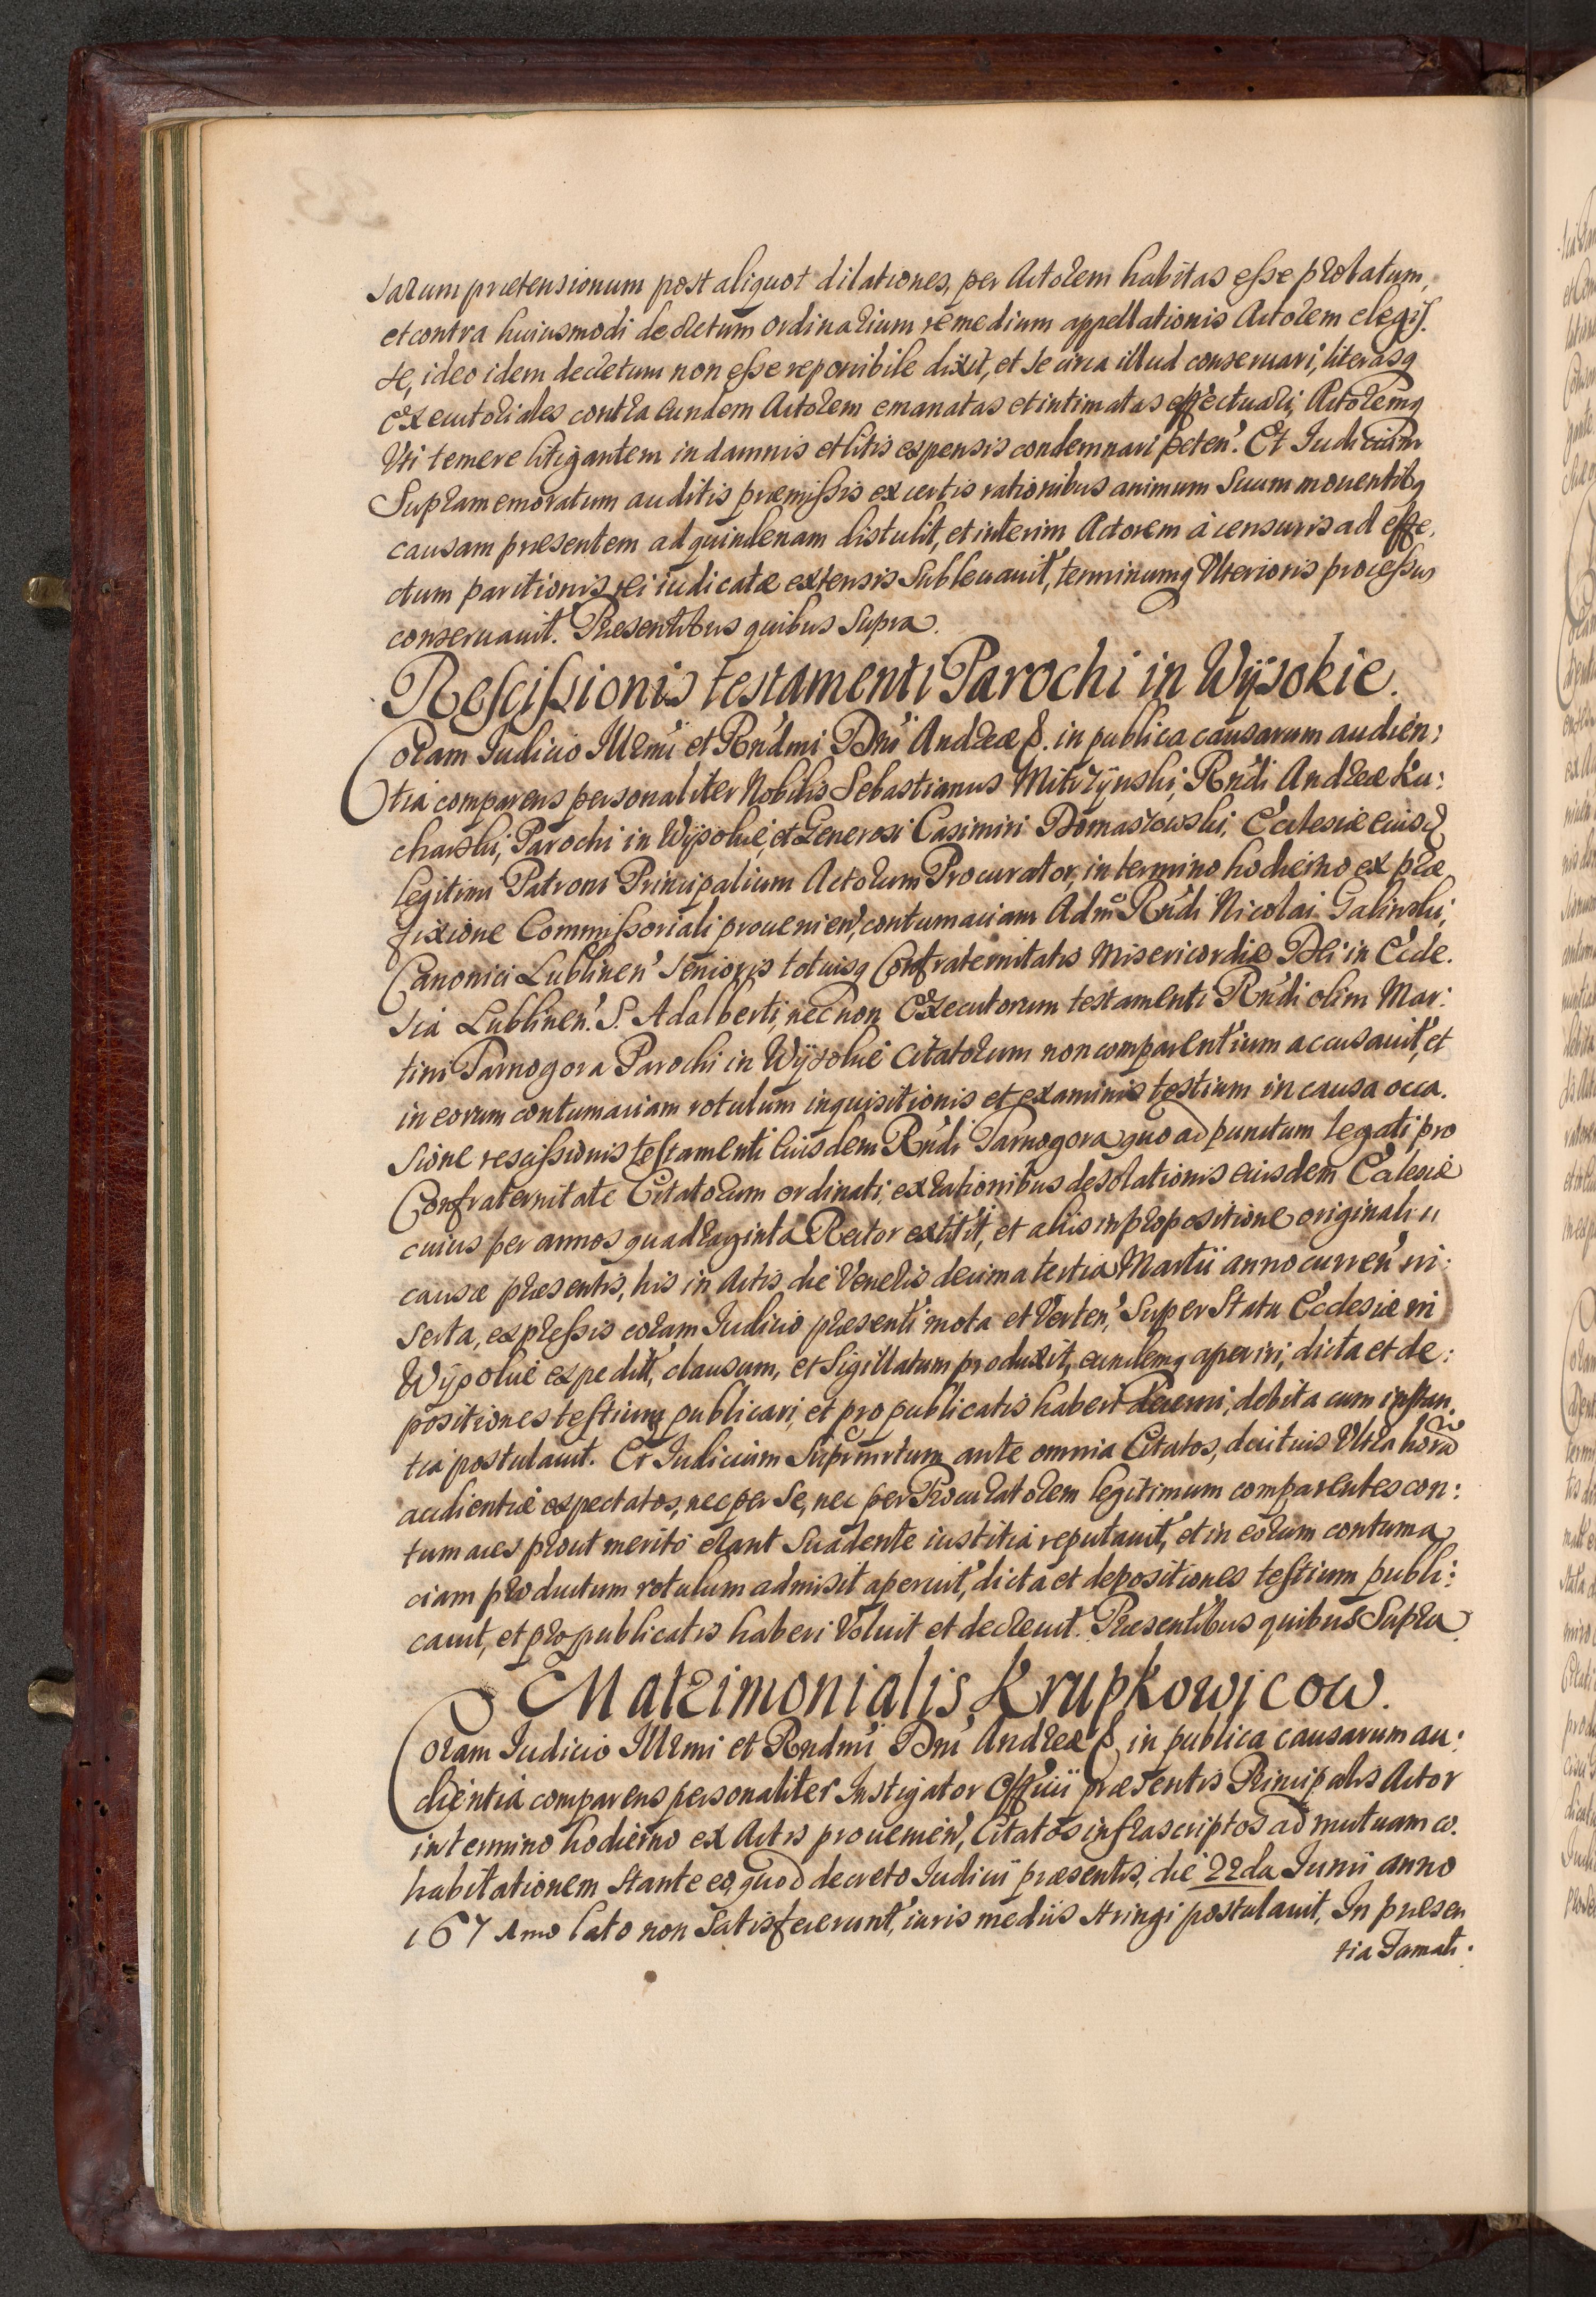 sarum prætensionum post aliquot dilationes, per Actorem habitas esse probatum,
et contra huiusmodi decretum ordinarium remedium appellationis Actorem elegis
se, ideo idem decretum non esse reponibile dixit, et se circa illud conseruari, literasq
Executoriales contra eundem Actorem emanatas et intimatas effectuari, Actoremq
Vti temere litigantem in damnis et litis expensis condemnari peten'. Et Iudicium
Supramemoratum auditis præmissis ex certis rationibus animum Suum mouentibq
causam præsentem ad quindenam distulit, et interim Actorem à censuris ad effe,
ctum paritionis rei iudicatæ extensis Subleuauit, terminumq Vlterioris processus
conseruauit. Præsentibus quibus Supra.
Rescissionis testamenti Parochi in Wÿsokie.
Coram Iudicio Illrmi et Rndmi Dni Andreæ &. in publica causarum audien:
tia comparens personaliter Nobilis Sebastianus Mitrzÿnski, Rndi Andreæ Ku:
charski, Parochi in Wÿsokie, et Generosi Casimiri Domaszowski, Ecclesiæ eiusd
legitimi Patroni Principalium Actorum Procurator, in termino hodierno ex præ
fixione Commissoriali prouenien', contumaciam Admo Rndi Nicolai Galinski,
Canonici Lublinen' Senioris totiusq Confraternitatis Misericordiæ Dei in Eccle.
sia Lublinen'. S. Adalberti, nec non Executorum testamenti Rndi olim Mar:
tini Tarnogora Parochi in Wÿsokie Citatorum non comparentium accusauit, et
in eorum contumaciam rotulum inquisitionis et examinis testium in causa occa.
sione rescissionis testamenti eiusdem Rndi Tarnogora quo ad punctum legati pro
Confraternitate Citatorum ordinati, ex rationibus desolationis eiusdem Ecclesiæ
cuius per annos quadraginta Rector extitit, et aliis in propositione originali
causæ præsentis, his in Actis die Veneris decima tertia Martii anno curren' in:
serta, expressis coram Iudicio præsenti mota et Verten', Super Statu Ecclesiæ in
Wÿsokie expedit, clausum, et Sigillatum produxit, eundemq aperiri, dicta et de:
positiones testium publicari, et pro publicatis haberi decerni, debita cum instan
tia postulauit. Et Iudicium Suprmrtum ante omnia Citatos, deci tuis Vltra horã
audientiæ expectatos, nec per Se, nec per Procuratorem legitimum comparentes con:
tumaces prout merito erant Suadente iustitia reputauit, et in eorum contuma
ciam productum rotulum admisit aperuit, dicta et depositiones testium publi:
cauit, et pro publicatis haberi Voluit et decreuit. Præsentibus quibus Supra
Matrimonialis Krupkowicow.
Coram Iudicio Illrmi et Rndmi Dni Andreæ &. in publica causarum au:
dientia comparens personaliter Instigator Officii præsentis Principalis Actor
in termino hodierno ex Actis prouenien', Citatos infrascriptos ad mutuam co.
habitationem Stante eo, quod decreto Iudicii præsentis, die 22da Iunii anno
167 Amo lato non Satisfecerunt, iuris mediis stringi postulauit. In præsen
tia Famati.